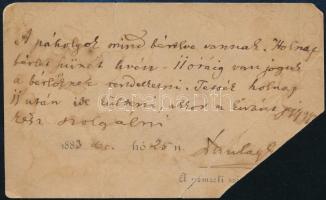 A páholyok mind bérelve vannak. Holnap
bérlet szünet lévén - 11 óráig van joguk
a bérlőknek rendelkezni. Tessék holnap
11 után ide küldeni, akkor a kívánt
kész szolgálni
1883 hó 25 n.
Paulay E
A nemzeti